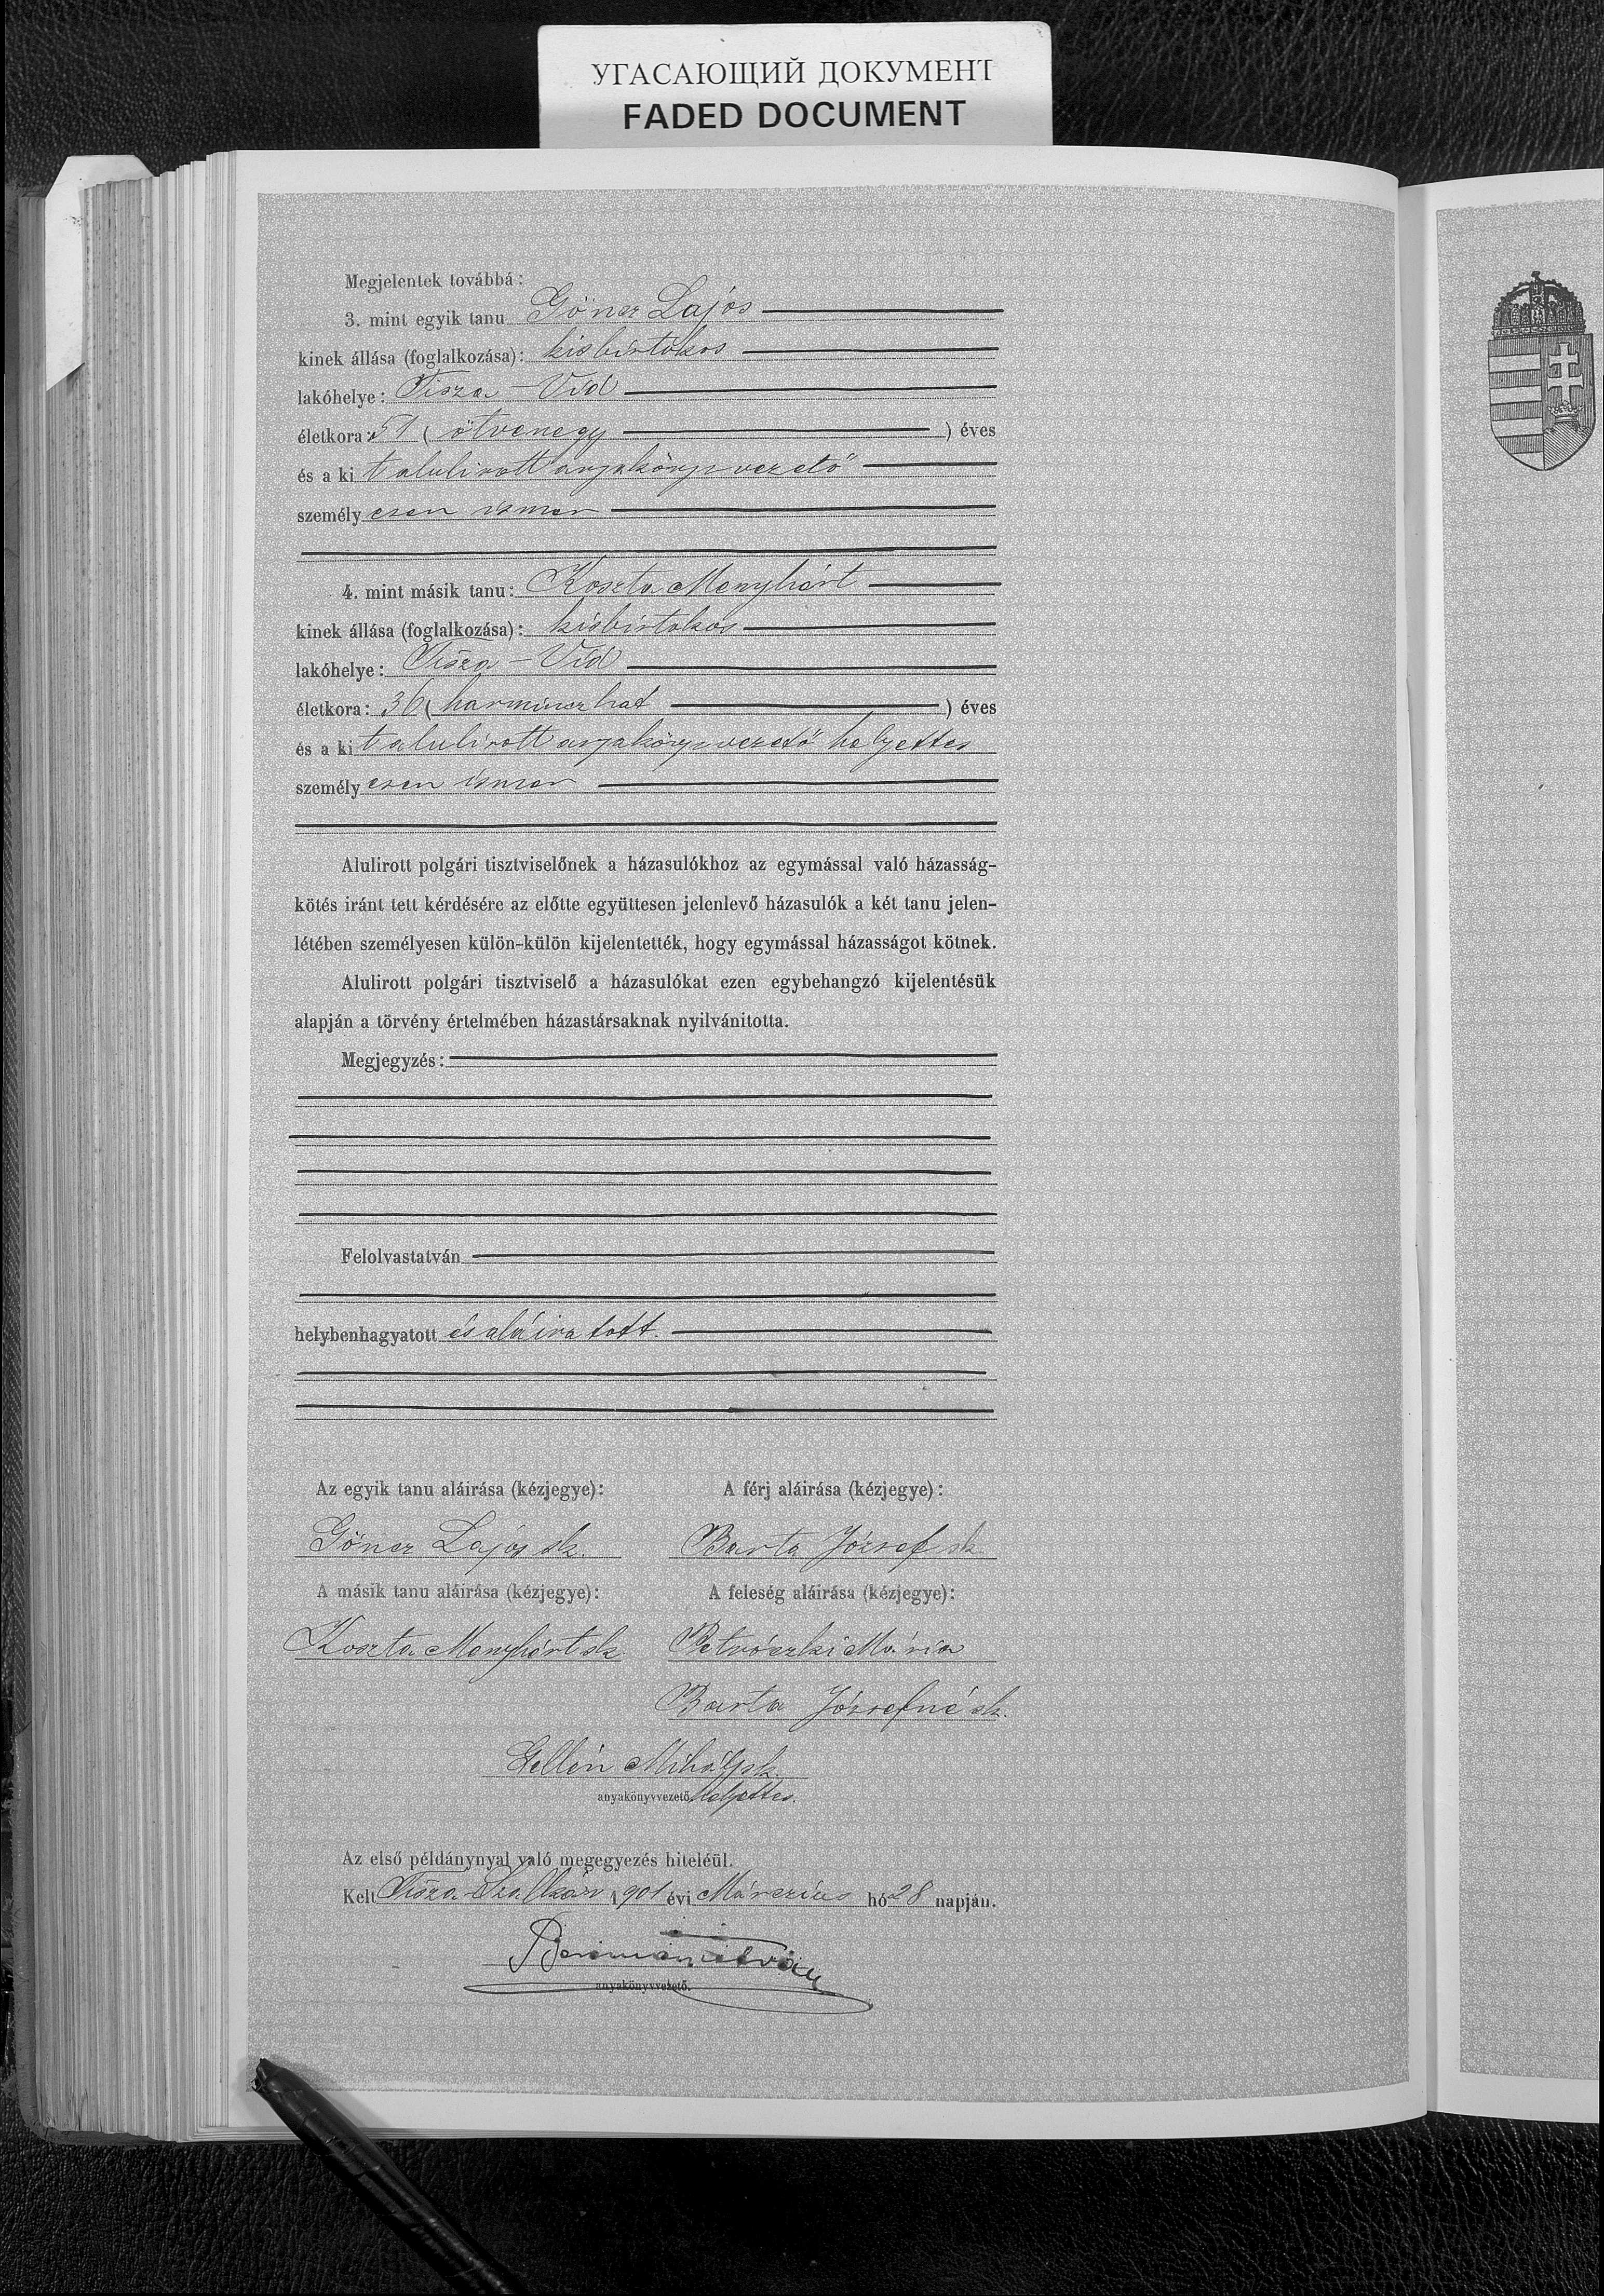 УГАСАЮЩИЙ ДОКУМЕНТ
FADED DOCUMENT
Megjelentek továbbá:
3. mint egyik tanu Göner Lajos
kinek állása (foglalkozása): kisbirtokos
lakóhelye: Tisza-Vid
életkora: 51 (ötvenegy) éves
és a ki t alulirott anyakönyvvezető
személyesen ismer
4. mint másik tanu: Koszta Menyhért
kinek állása (foglalkozása): kisbirtokos
lakóhelye: Tisza-Vid
életkora: 36 (harminczhat) éves
és a ki t alulirott anyakönyvvezető helyettes
személyesen ismer
Alulirott polgári tisztviselőnek a házasulókhoz az egymással való házasság-
kötés iránt tett kérdésére az előtte együttesen jelenlevő házasulók a két tanu jelen-
létében személyesen külön-külön kijelentették, hogy egymással házasságot kötnek.
Alulirott polgári tisztviselő a házasulókat ezen egybehangzó kijelentésük
alapján a törvény értelmében házastársaknak nyilvánitotta.
Megjegyzés:
Felolvastatván
helybenhagyatott és aláiratott.
Az egyik tanu aláirása (kézjegye): A férj aláirása (kézjegye):
Göner Lajos sk. Barta József sk.
A másik tanu aláirása (kézjegye): A feleség aláirása (kézjegye):
Koszta Menyhért sk Petróczki Mária
Barta Józsefné sk.
Gellén Mihály sk.
anyakönyvvezető helyettes.
Az első példánynyal való megegyezés hiteléül.
Kelt Tisza-Szalkán 1901 évi Márczius hó 28 napján.
István
anyakönyvvezető.